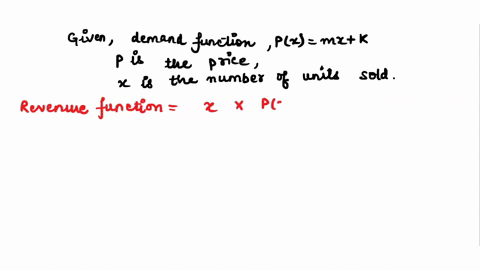 Given, demand function, P(x) = mx + K
P is the price,
x is the number of units sold.
Revenue function = x × P(